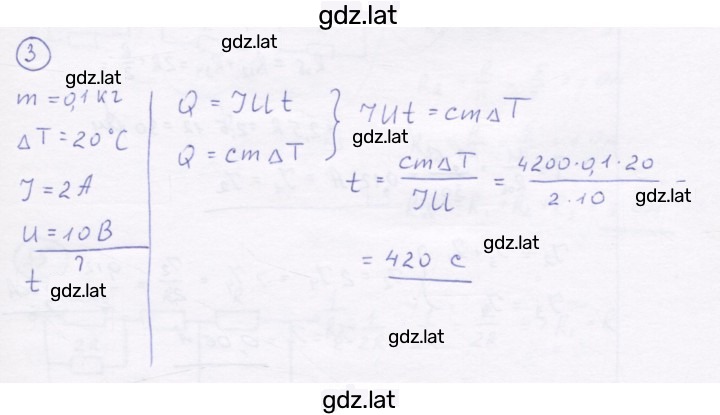 gdz.lat
③
gdz.lat
gdz.lat
m = 0,1 кг
ΔT = 20°C
J = 2 A
U = 10 В
t ?
gdz.lat
Q = JUt
Q = cmΔT
} JUt = cmΔT
gdz.lat
t = cmΔT / JU = 4200·0,1·20 / 2·10 =
gdz.lat
= 420 с
gdz.lat
gdz.lat
gdz.lat